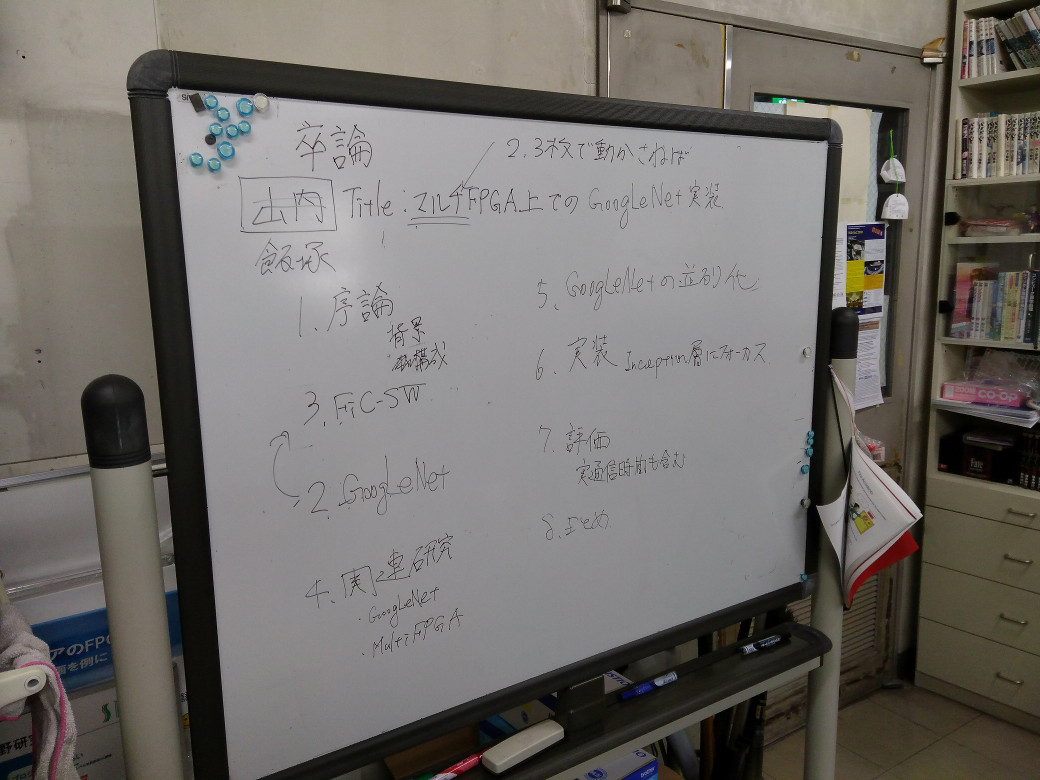 卒論
2.3枚で動かさねば
出内 Title:マルチFPGA上でのGoogLeNet実装
飯塚
1.序論
背景
構成
3.FiC-SW
2.GoogLeNet
4.関連研究
・GoogLeNet
・MultiFPGA
5.GoogLeNetの並列化
6.実装 Inception層にフォーカス
7.評価
実通信時間も含む
8.まとめ
アのFP
を例に
野研
CO-OP